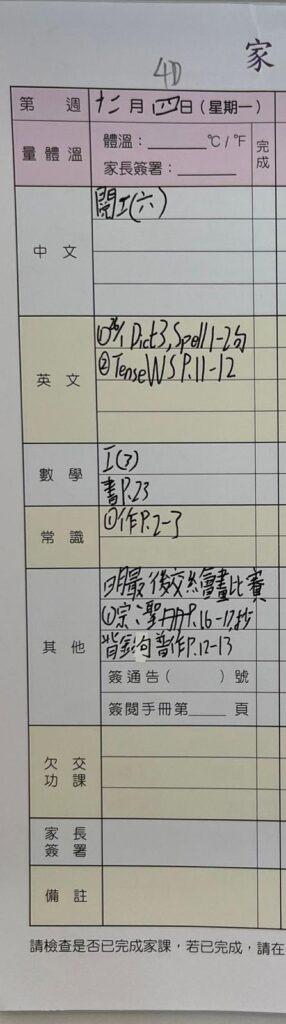 4D
家
第 週 十二月四日(星期一)
量體溫
體溫：______℃/℉
家長簽署：______
完成
中文
閱工(六)
英文
Dict3,Spell 1-2句
②Tense WS P.11-12
數學
工(3)
書P.23
常識
①作P.2-3
其他
明最後交繪畫比賽
①宗:聖冊P.16-17,抄
背金句 普作P.12-13
簽通告( )號
簽閱手冊第____頁
欠交功課
家長簽署
備註
請檢查是否已完成家課，若已完成，請在